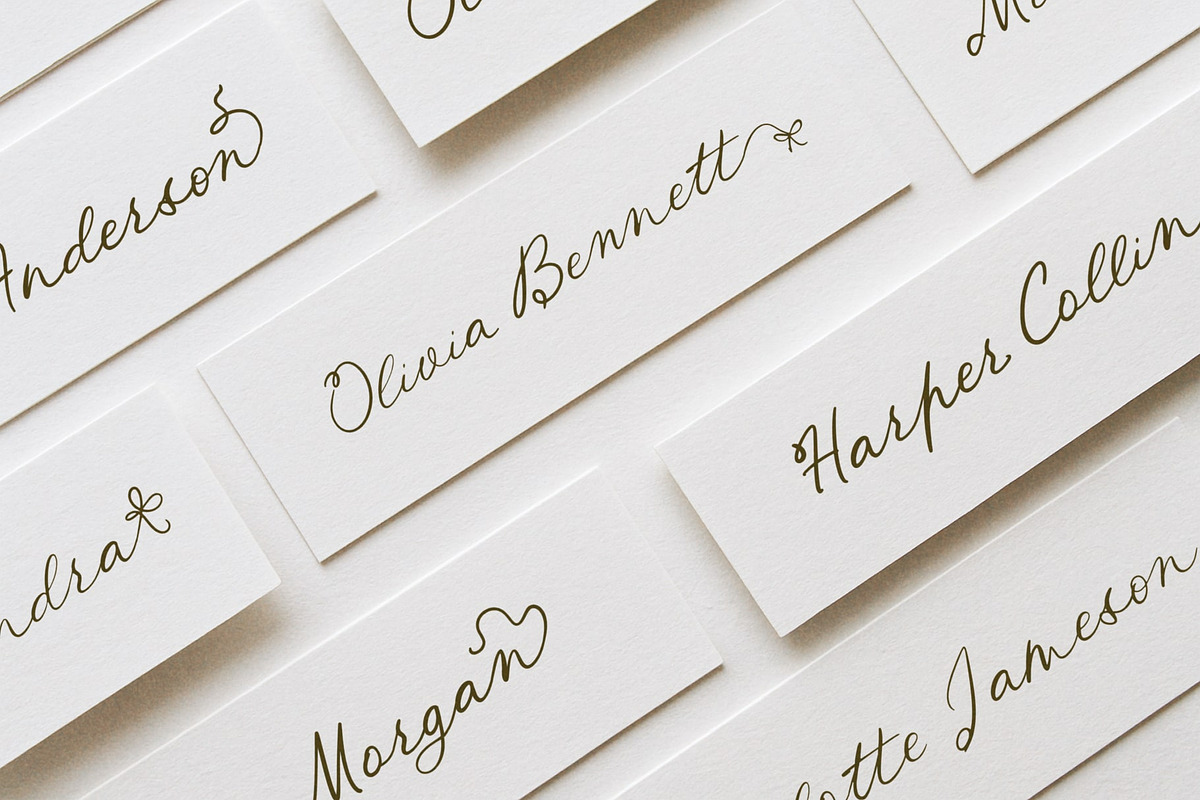 Anderson
Olivia Bennett
Harper Collin
ndra
Morgan
lotte Jameson